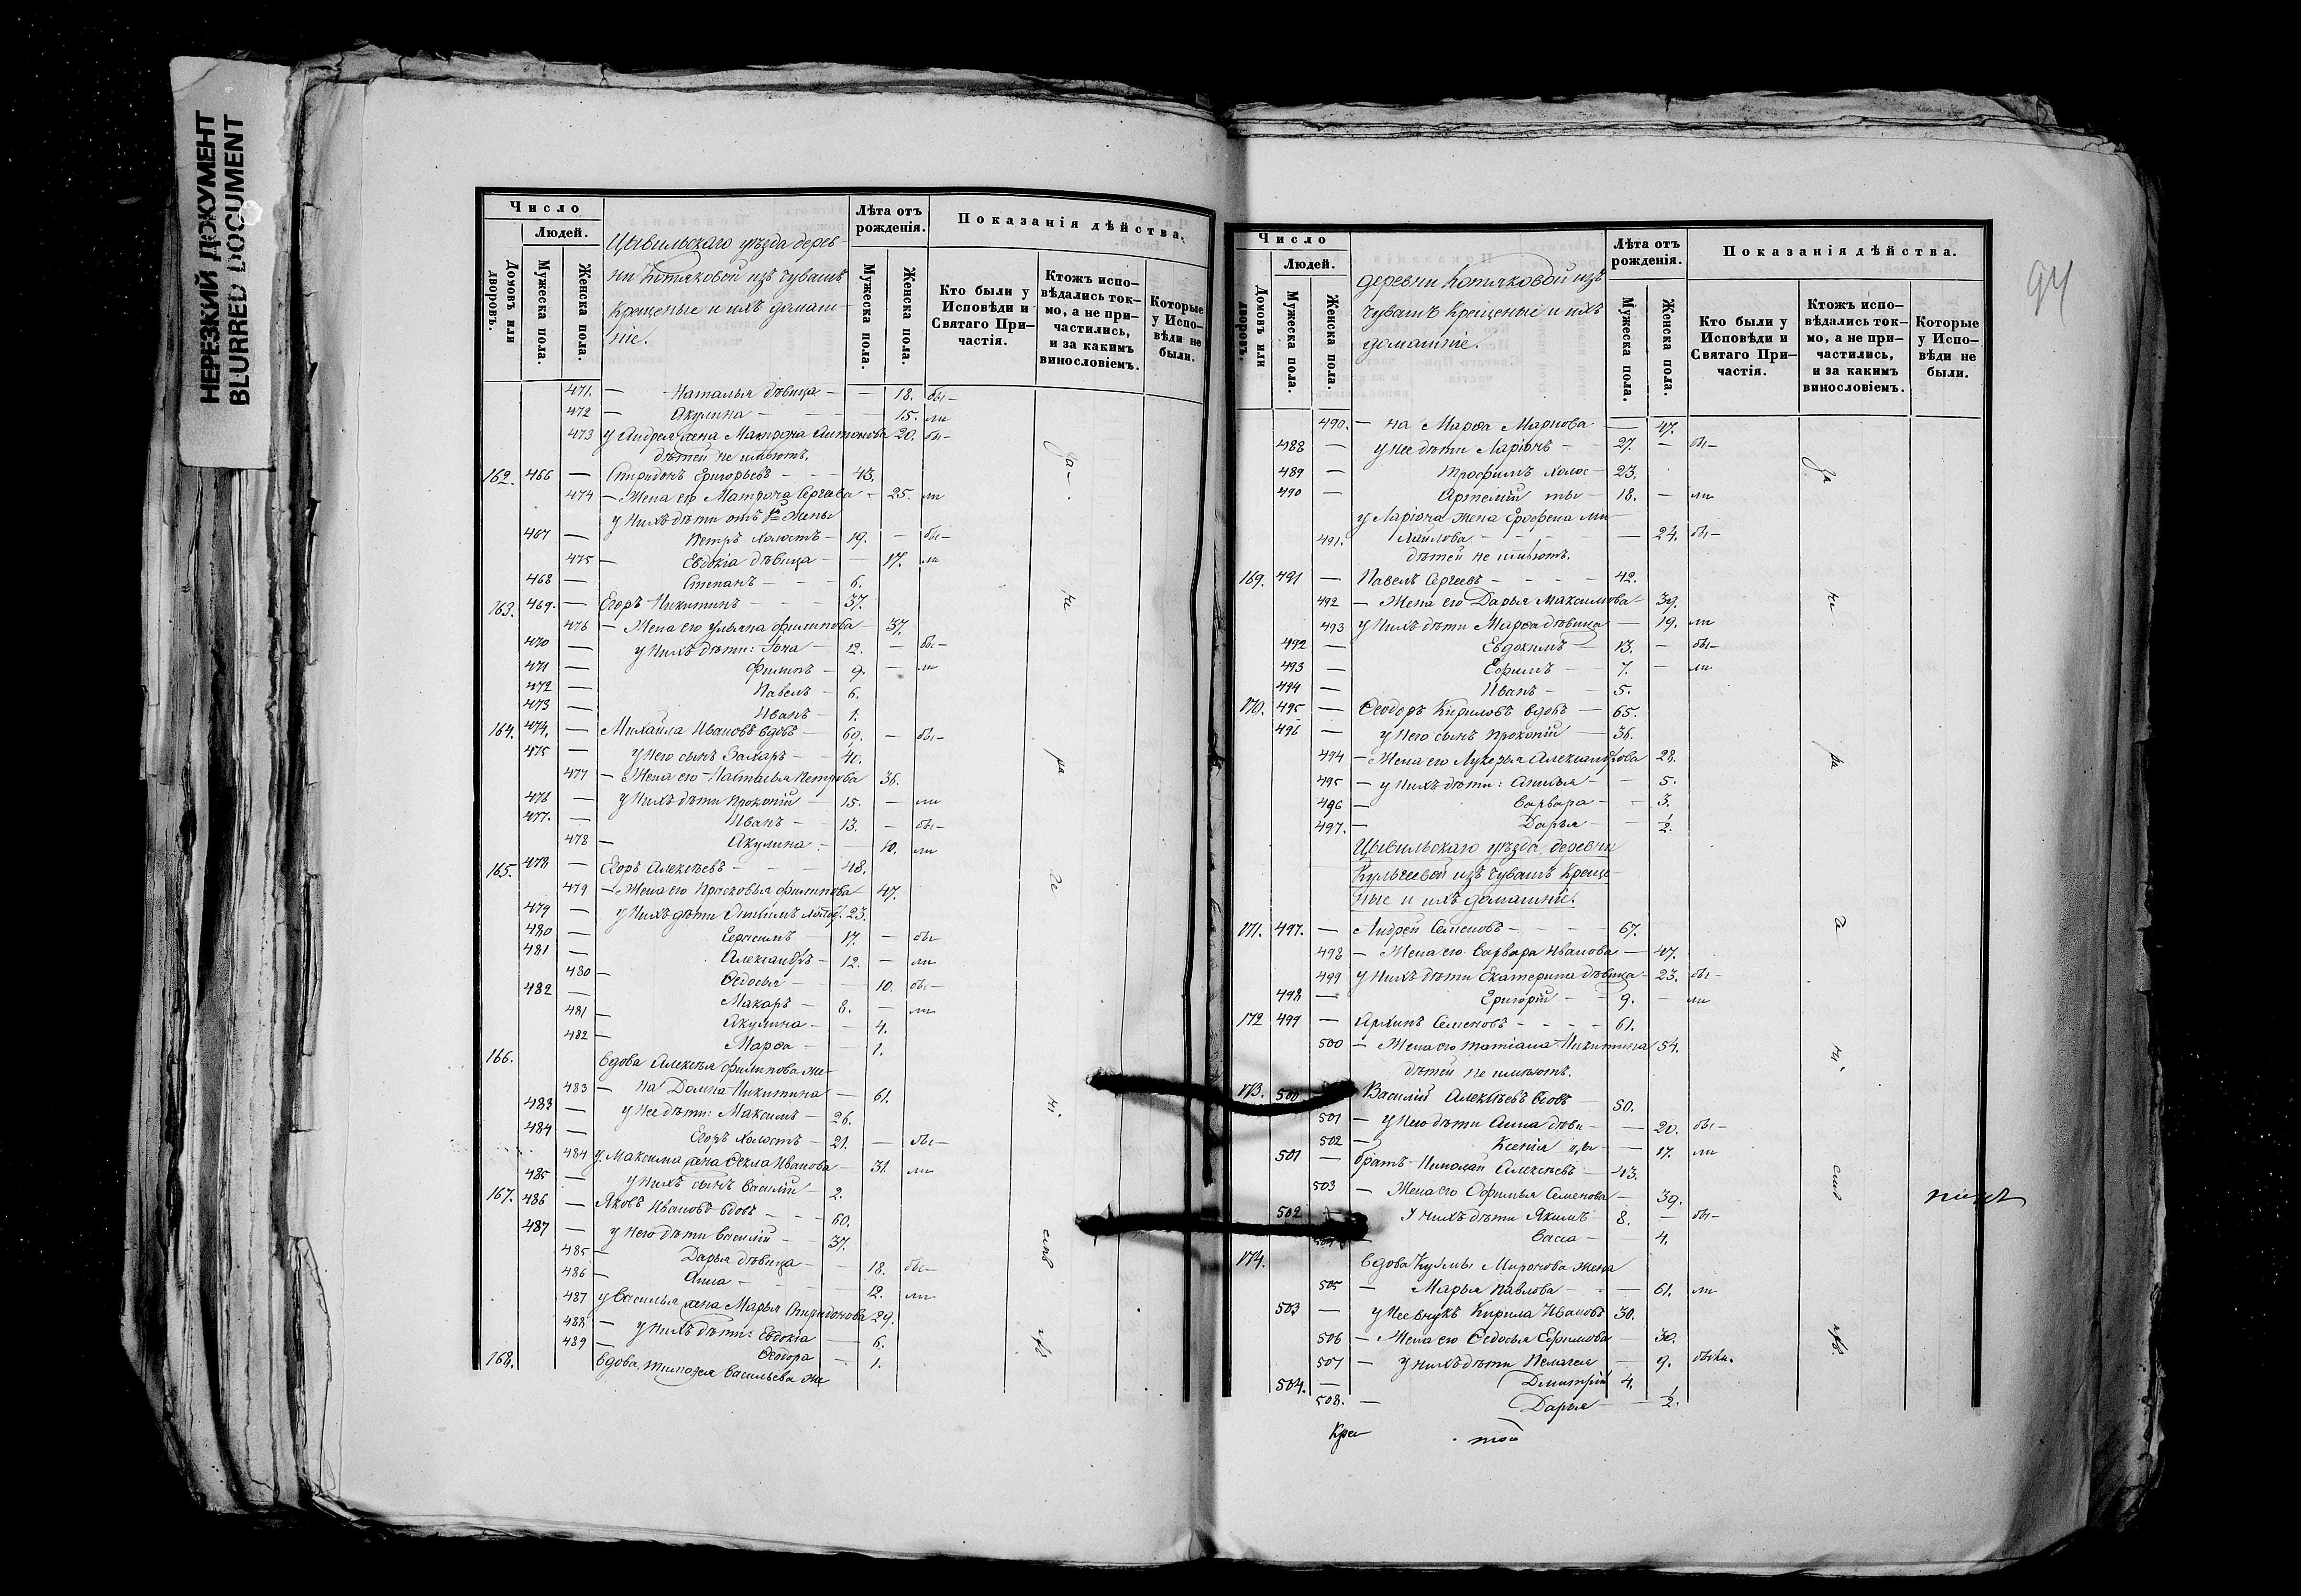 НЕРЕЗКИЙ ДОКУМЕНТ
BLURRED DOCUMENT
Число
Людей.
Домовъ или дворовъ.
Мужеска пола.
Женска пола.
Цывильскаго уѣзда дерев-
ни Котяковой изъ чувашъ
Крещеные и ихъ домаш-
ніе.
Лѣта отъ рожденія.
Мужеска пола.
Женска пола.
Показанія дѣйства.
Кто были у Исповѣди и Святаго При-частія.
Ктожъ испо-вѣдались ток-мо, а не при-частились, и за какимъ винословіемъ.
Которые у Испо-вѣди не были.
471. — Наталья дѣвица — — 18. бы—
472 — Акулина — — 15. ли
473 у Андрея жена Матрона Антонова 20. бы—
дѣтей не имѣютъ.
162. 466 — Спиридонъ Григорьевъ — — 43.
474 — Жена его Матрона Сергѣева — 25. ли
у нихъ дѣти отъ 1й жены
467 — Петръ холостъ — 19. — бы—
475 — Евдокія дѣвица — — 17. ли
468 — Степанъ — — 6.
163. 469. — Егоръ Никитинъ — — 37.
476 — Жена его Ульяна Филипова — 37.
470 — у нихъ дѣти: Іона — 12. — бы—
471 — Филипъ — 9. — ли
472 — Павелъ — 6.
473 — Иванъ — 1.
164. 474. — Михайла Ивановъ вдовъ — 60. — бы—
475 — у него сынъ Захаръ — 40.
477 — Жена его Настасья Петрова 36.
476 — у нихъ дѣти Прокопій — 15. — ли
477. — Иванъ — 13. — бы—
478 — Акулина — — 10. ли
165. 478 — Егоръ Алексѣевъ — — 48.
479 — Жена его Прасковья Филипова 47.
479 — у нихъ дѣти Акимъ холос. 23.
480 — Герасимъ — 17. — бы
481 — Александръ — 12. — ли
480 — Ѳедосья — — 10. бы—
482 — Макаръ — 8. — ли
481 — Акулина — — 4.
482 — Марѳа — — 1.
166. вдова Алексѣя Филипова же-
483 — на Домна Никитина — 61.
483 — у нее дѣти: Максимъ — 26.
484 — Егоръ холостъ — 21. — бы—
484 у Максима жена Ѳекла Иванова — 31. ли
485 — у нихъ сынъ Василій — 2.
167. 486 — Яковъ Ивановъ вдовъ — — 60.
487 — у него дѣти Василій — 37.
485 — Дарья дѣвица — — 18. бы—
486 — Анна — — 12. ли
487 у Василья жена Марья Спиридонова 29.
488 — у нихъ дѣти: Евдокія — 6.
489 — Ѳеодора — 1.
168. вдова, Тимоѳея Васильева же
94
Число
Людей.
Домовъ или дворовъ.
Мужеска пола.
Женска пола.
деревни Котяковой изъ
чувашъ Крещеные и ихъ
домашніе.
Лѣта отъ рожденія.
Мужеска пола.
Женска пола.
Показанія дѣйства.
Кто были у Исповѣди и Святаго При-частія.
Ктожъ испо-вѣдались ток-мо, а не при-частились, и за какимъ винословіемъ.
Которые у Испо-вѣди не были.
490. — на Марѳа Маркова — 47.
488 — у нее дѣти Ларіонъ — 27. — бы—
489 — Трофимъ холос— 23.
490 — Артемій ты — 18. — ли
у Ларіона жена Ерофена Ми-
491. хайлова — — — 24. бы—
дѣтей не имѣютъ.
169. 491 — Павелъ Сергѣевъ — — 42.
492 — Жена его Дарья Максимова — 39.
493 у нихъ дѣти Марѳа дѣвица — 19. ли
492 — Евдокимъ — 13. — бы—
493 — Ефимъ — 7. — ли
494 — Иванъ — — 5.
170. 495 — Ѳеодоръ Кириловъ вдовъ — 65.
496 — у него сынъ Прокопій — 36.
494 — Жена его Лукерья Александрова 28.
495 — у нихъ дѣти: Анисья — — 5.
496 — Варвара — — 3.
497. — Дарья — — ½.
Цывильскаго уѣзда, деревни
Кульгеевой изъ чувашъ Креще-
ные и ихъ домашніе.
171. 497. — Андрей Семеновъ — — 67.
498 — Жена его Варвара Иванова — 47.
499 у нихъ дѣти Екатерина дѣвица — 23. бы—
498 — Григорій — — 9. — ли
172 499 — Архипъ Семеновъ — — 61.
500 — Жена его Татіана Никитина 54.
дѣтей не имѣютъ.
173. 500 Василій Алексѣевъ вдовъ — 50.
501 — у него дѣти Анна дѣви — — 20. бы—
502 — Ксенія цы — — 17. ли
501 — братъ Николай Алексѣевъ — 43.
503 — Жена его Софимья Семенова — 39.
502 у нихъ дѣти Якимъ — 8. — бы—
Васса — 4.
174. вдова Кузмы Миронова жена
505 — Марья Павлова — — 61. ли
503 — у нее внукъ Кирила Ивановъ 30.
506 — Жена его Ѳедосья Ефимова — 30.
507 — у нихъ дѣти Пелагея — 9. были.
504. — Дмитрій 4.
508. — Дарья — — ½.